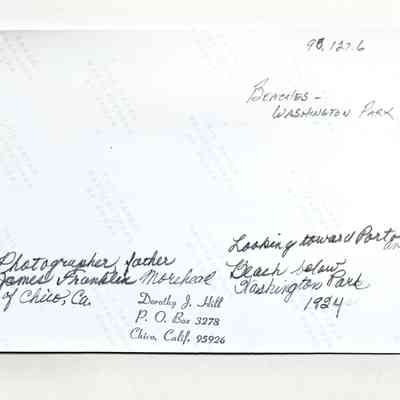 90.127.6
BEACHES -
WASHINGTON PARK
Looking toward
Beach below
Washington Park
1924
Photographer, father
James Franklin Morehead
of Chico, Ca.
Dorothy J. Hill
P. O. Box 3278
Chico, Calif. 95926